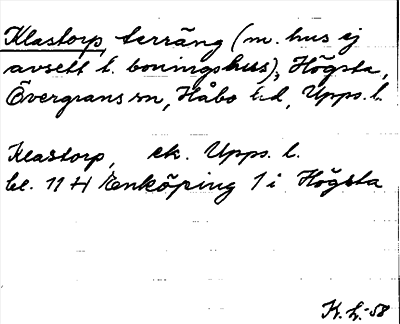 Klastorp, terräng (m. hus ej
avsett t. boningshus), Högsta,
Övergrans sn, Håbo hd, Upps. l.
Klastorp, ek. Upps. l.
bl. 11 H Enköping 1 i Högsta
K. L. -58